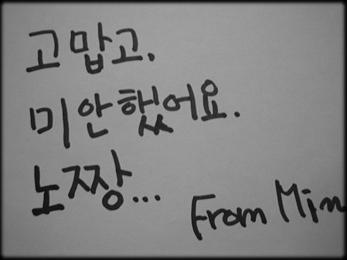 고맙고.
미안했어요.
노짱...
From Min